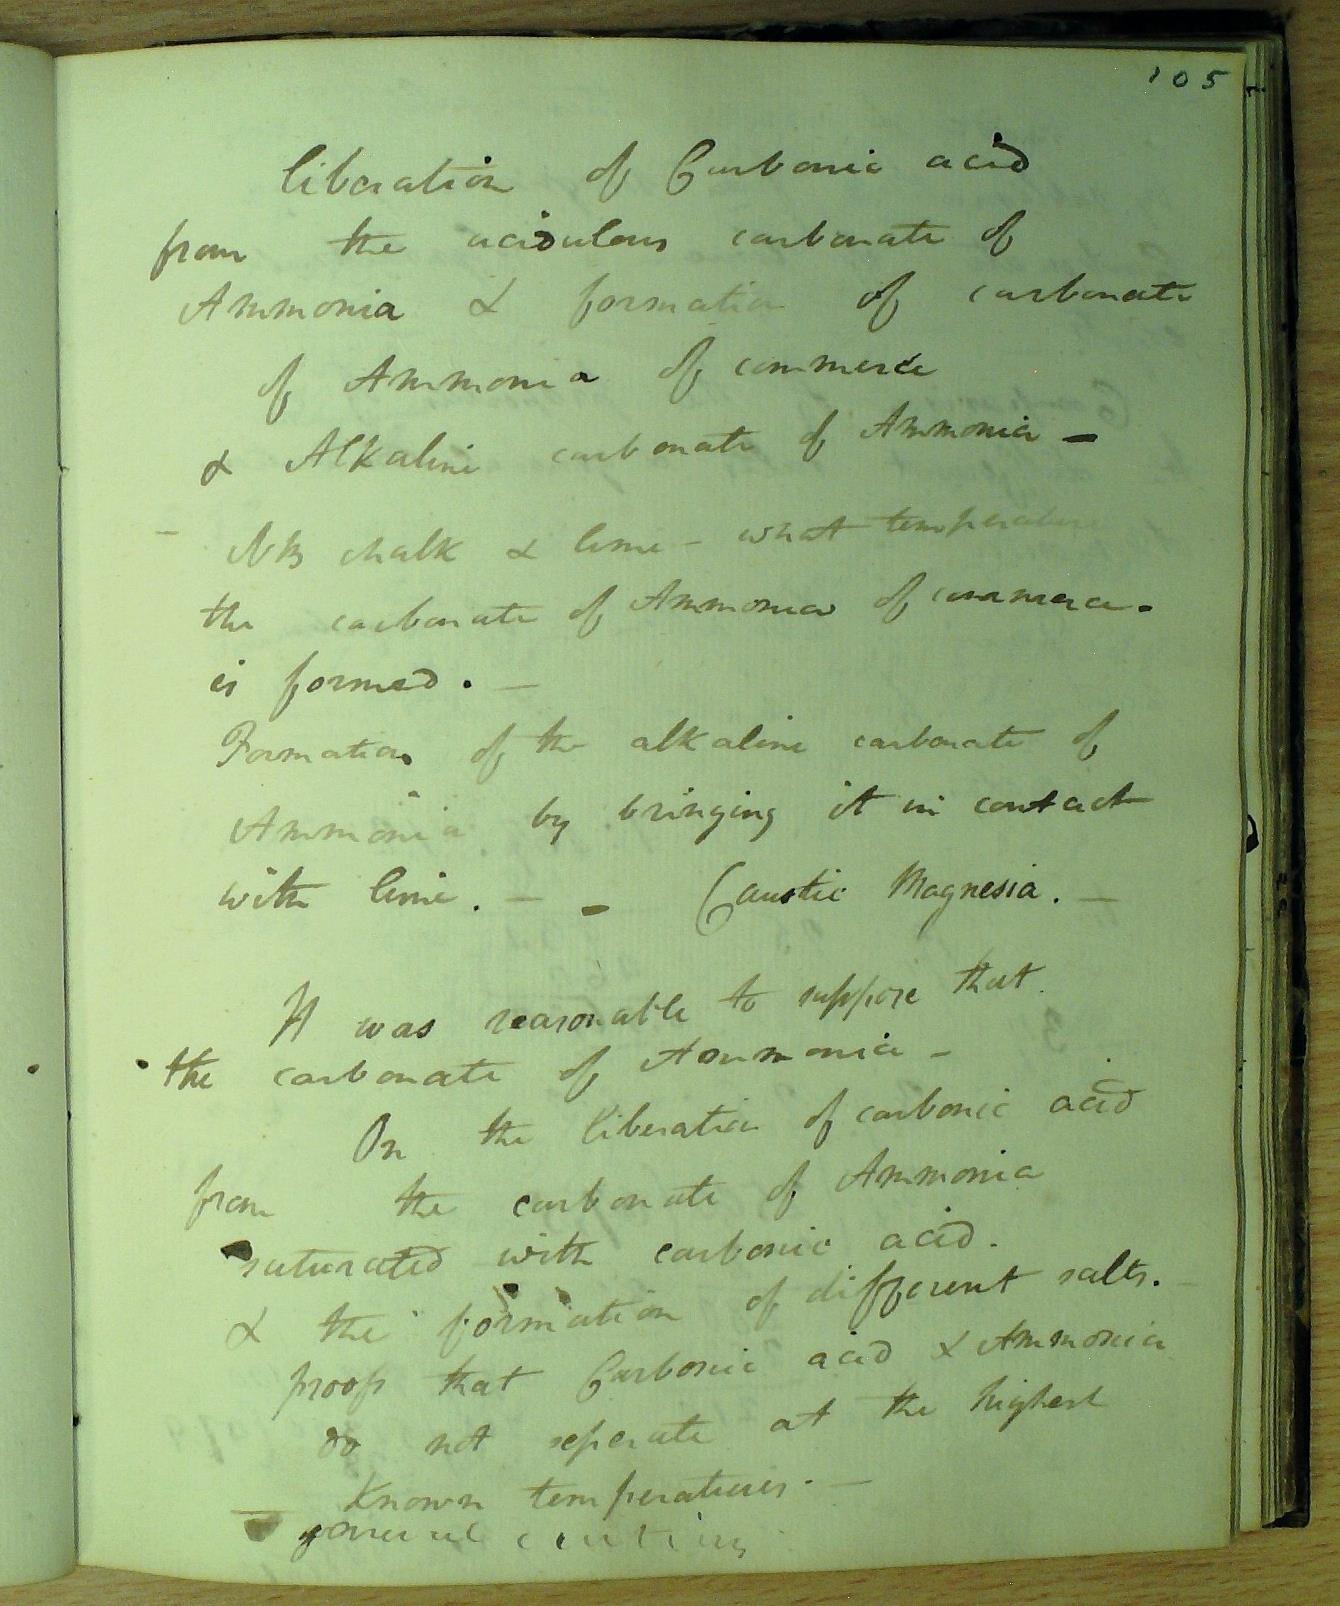 105
liberation of Carbonic acid
from the acidulous carbonate of
Ammonia & formation of carbonate
of Ammonia of commerce
& Alkaline carbonate of Ammonia -
- NB chalk & lime - what temperature
the carbonate of Ammonia of commerce.
is formed. -
Formation of the alkaline carbonate of
Ammonia by bringing it in contact
with lime. - - Caustic Magnesia. -
It was reasonable to suppose that
the carbonate of Ammonia -
On the liberation of carbonic acid
from the carbonate of Ammonia
saturated with carbonic acid.
& the formation of different salts. -
proofs that Carbonic acid & Ammonia
do not seperate at the highest
Known temperatures. -
- general